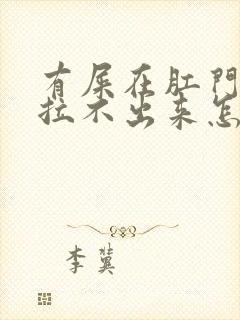 有屎在肛門
拉不出来怎
李冀